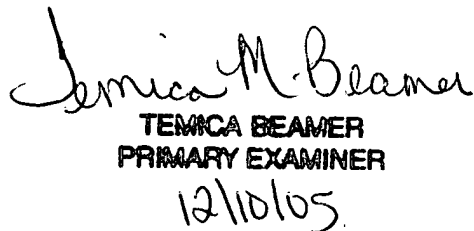 Temica M. Beamer
TEMICA BEAMER
PRIMARY EXAMINER
12/10/05